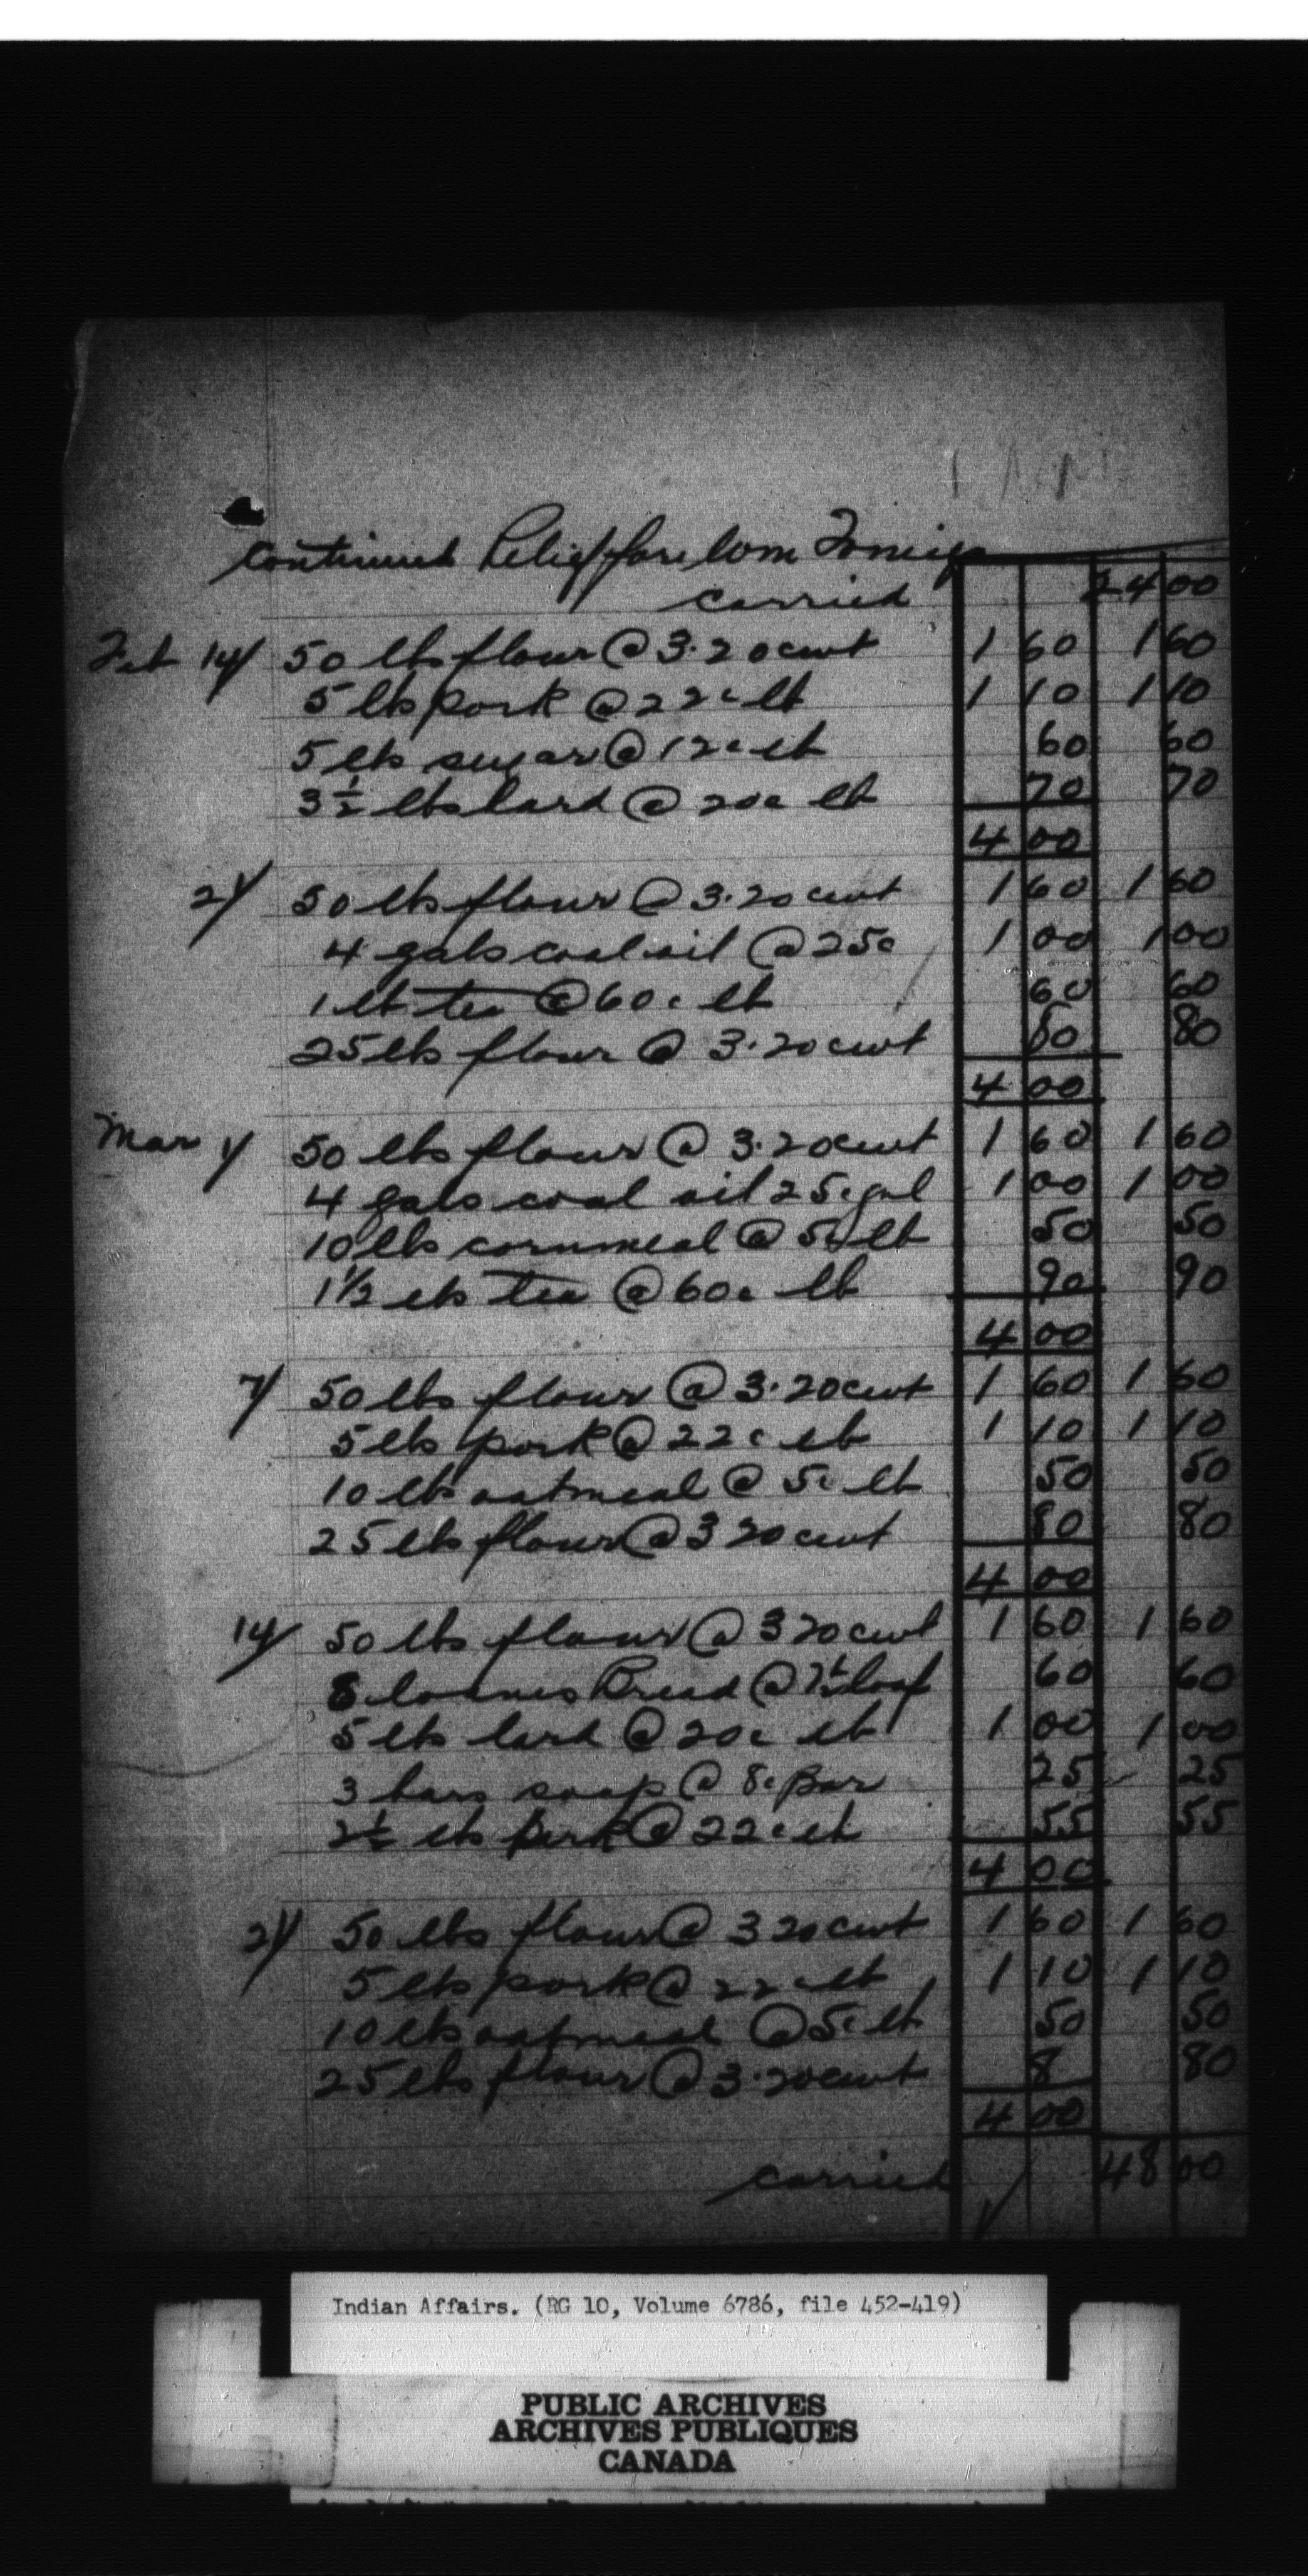 Continued Relief for Tom
carried 24 00
Feb 14/ 50 lbs flour @ 3.20 cwt 1 60 1 60
5 lbs pork @ 22c lb 1 10 1 10
5 lbs sugar @ 12c lb 60 60
3 1/2 lbs lard @ 20c lb 70 70
4 00
21/ 50 lbs flour @ 3.20 cwt 1 60 1 60
4 gals coal oil @ 25c 1 00 1 00
1 lb tea @ 60c lb 60 60
25 lbs flour @ 3.20 cwt 80 80
4 00
Mar 1/ 50 lbs flour @ 3.20 cwt 1 60 1 60
4 gals coal oil 25c gal 1 00 1 00
10 lbs cornmeal @ 5c lb 50 50
1 1/2 lbs tea @ 60c lb 90 90
4 00
7/ 50 lbs flour @ 3.20 cwt 1 60 1 60
5 lbs pork @ 22c lb 1 10 1 10
10 lbs oatmeal @ 5c lb 50 50
25 lbs flour @ 3 20 cwt 80 80
4 00
14/ 50 lbs flour @ 3 20 cwt 1 60 1 60
8 loaves Bread @ 7 1/2 loaf 60 60
5 lbs lard @ 20c lb 1 00 1 00
3 bars soap @ 8c Bar 25 25
2 1/2 lbs pork @ 22c lb 55 55
4 00
21/ 50 lbs flour @ 3 20 cwt 1 60 1 60
5 lbs pork @ 22c lb 1 10 1 10
10 lbs oatmeal @ 5c lb 50 50
25 lbs flour @ 3.20 cwt 8 80
4 00
carried 48 00
Indian Affairs. (RG 10, Volume 6786, file 452-419)
PUBLIC ARCHIVES
ARCHIVES PUBLIQUES
CANADA